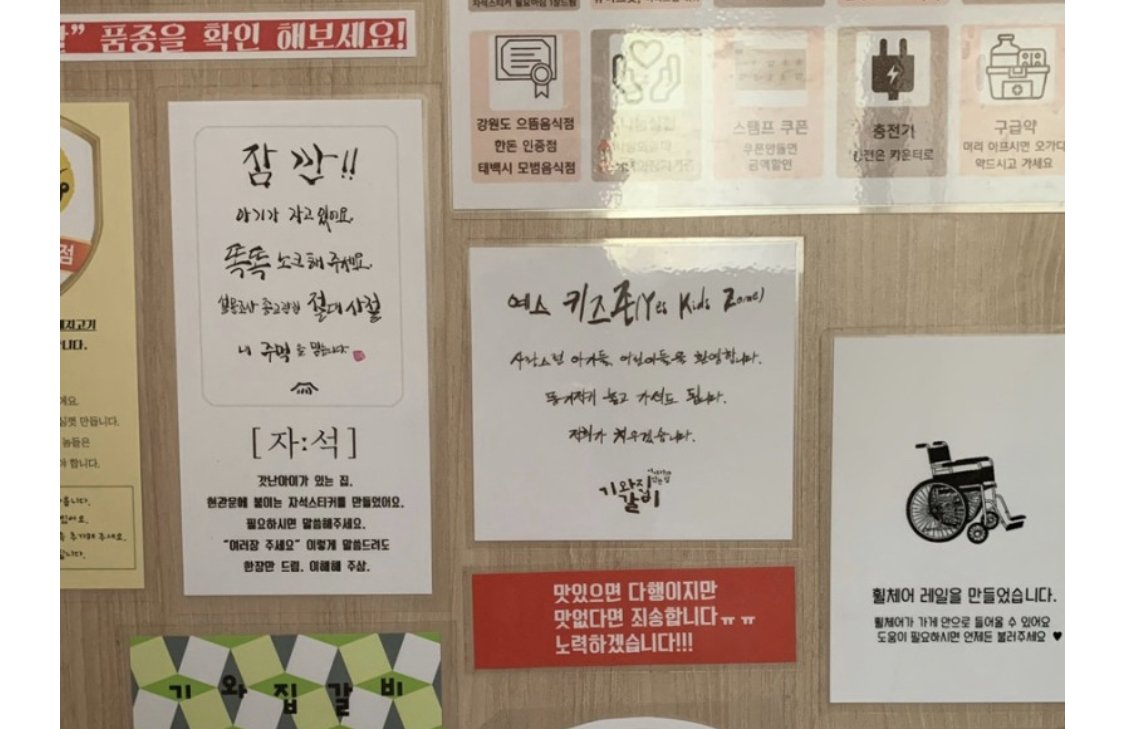 ” 품종을 확인 해보세요!
강원도 으뜸음식점
한돈 인증점
태백시 모범음식점
스탬프 쿠폰
쿠폰만들면
금액할인
충전기
충전은 카운터로
구급약
머리 아프시면 오가다
약드시고 가세요
점
잠깐!!
아기가 자고 있어요.
똑똑 노크해 주세요.
설문조사 종교권유 절대사절
내 주먹을 믿습니다.
[자:석]
갓난아이가 있는 집.
현관문에 붙이는 자석스티커를 만들었어요.
필요하시면 말씀해주세요.
“여러장 주세요” 이렇게 말씀드려도
한장만 드림. 이해해 주삼.
예스 키즈존(Yes Kids Zone)
사랑스런 아가들, 어린이들을 환영합니다.
똥기저귀 놓고 가셔도 됩니다.
저희가 치우겠습니다.
기와집
갈비
맛있으면 다행이지만
맛없다면 죄송합니다ㅠㅠ
노력하겠습니다!!!
휠체어 레일을 만들었습니다.
휠체어가 가게 안으로 들어올 수 있어요
도움이 필요하시면 언제든 불러주세요 ♥
기와집갈비